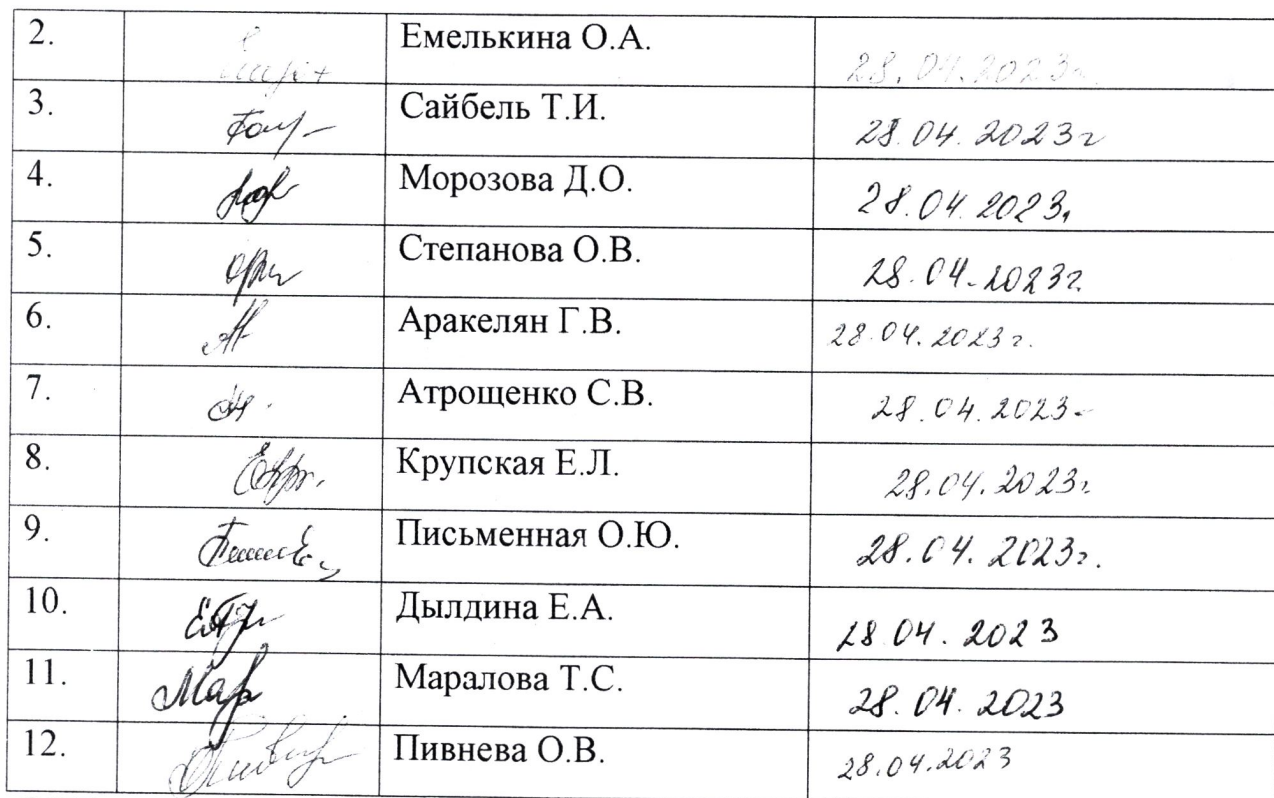 2. Емелькина О.А. 28.04.2023г.
3. Сайбель Т.И. 28.04.2023г
4. Морозова Д.О. 28.04.2023г
5. Степанова О.В. 28.04.2023г.
6. Аракелян Г.В. 28.04.2023г.
7. Атрощенко С.В. 28.04.2023г
8. Крупская Е.Л. 28.04.2023г
9. Письменная О.Ю. 28.04.2023г.
10. Дылдина Е.А. 28.04.2023
11. Мар Маралова Т.С. 28.04.2023
12. Пивнева О.В. 28.04.2023